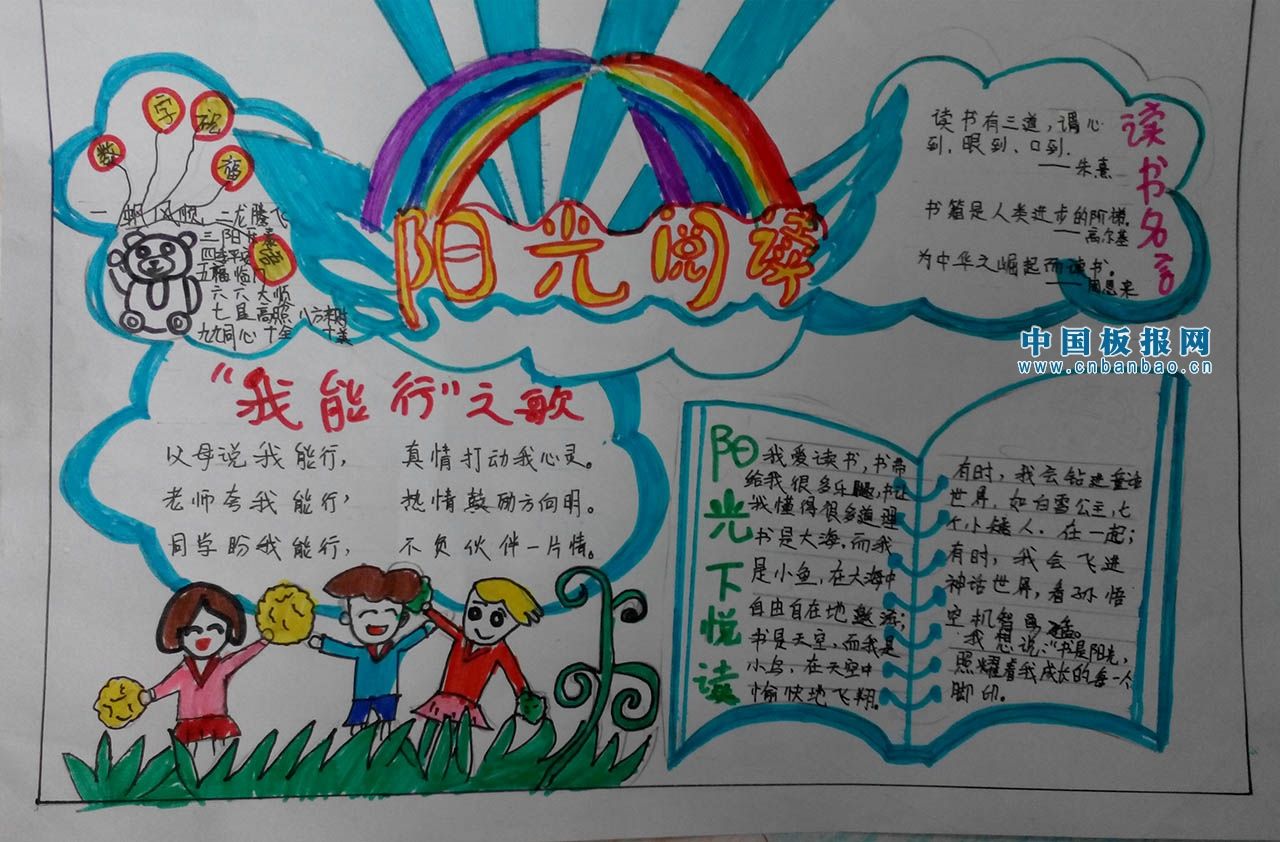 阳光阅读
数字祝福语
一帆风顺 二龙腾飞
三阳开泰
四季平安
五福临门
六六大顺
七星高照 八方来财
九九同心 十全十美
读书名言
读书有三道，谓心
到、眼到、口到.
——朱熹
书籍是人类进步的阶梯
——高尔基
为中华之崛起而读书。
——周恩来
中国板报网
www.cnbanbao.cn
“我能行”之歌
父母说我能行， 真情打动我心灵。
老师夸我能行， 热情鼓励方向明。
同学盼我能行， 不负伙伴一片情。
阳光下悦读
我爱读书，书带
给我很多乐趣，书让
我懂得很多道理
书是大海，而我
是小鱼，在大海中
自由自在地遨游；
书是天空，而我是
小鸟，在天空中
愉快地飞翔。
有时，我会钻进童话
世界，如白雪公主，七
个小矮人，在一起；
有时，我会飞进
神话世界，看孙悟
空机智勇猛。
我想说：“书是阳光，
照耀着我成长的每一个
脚印。